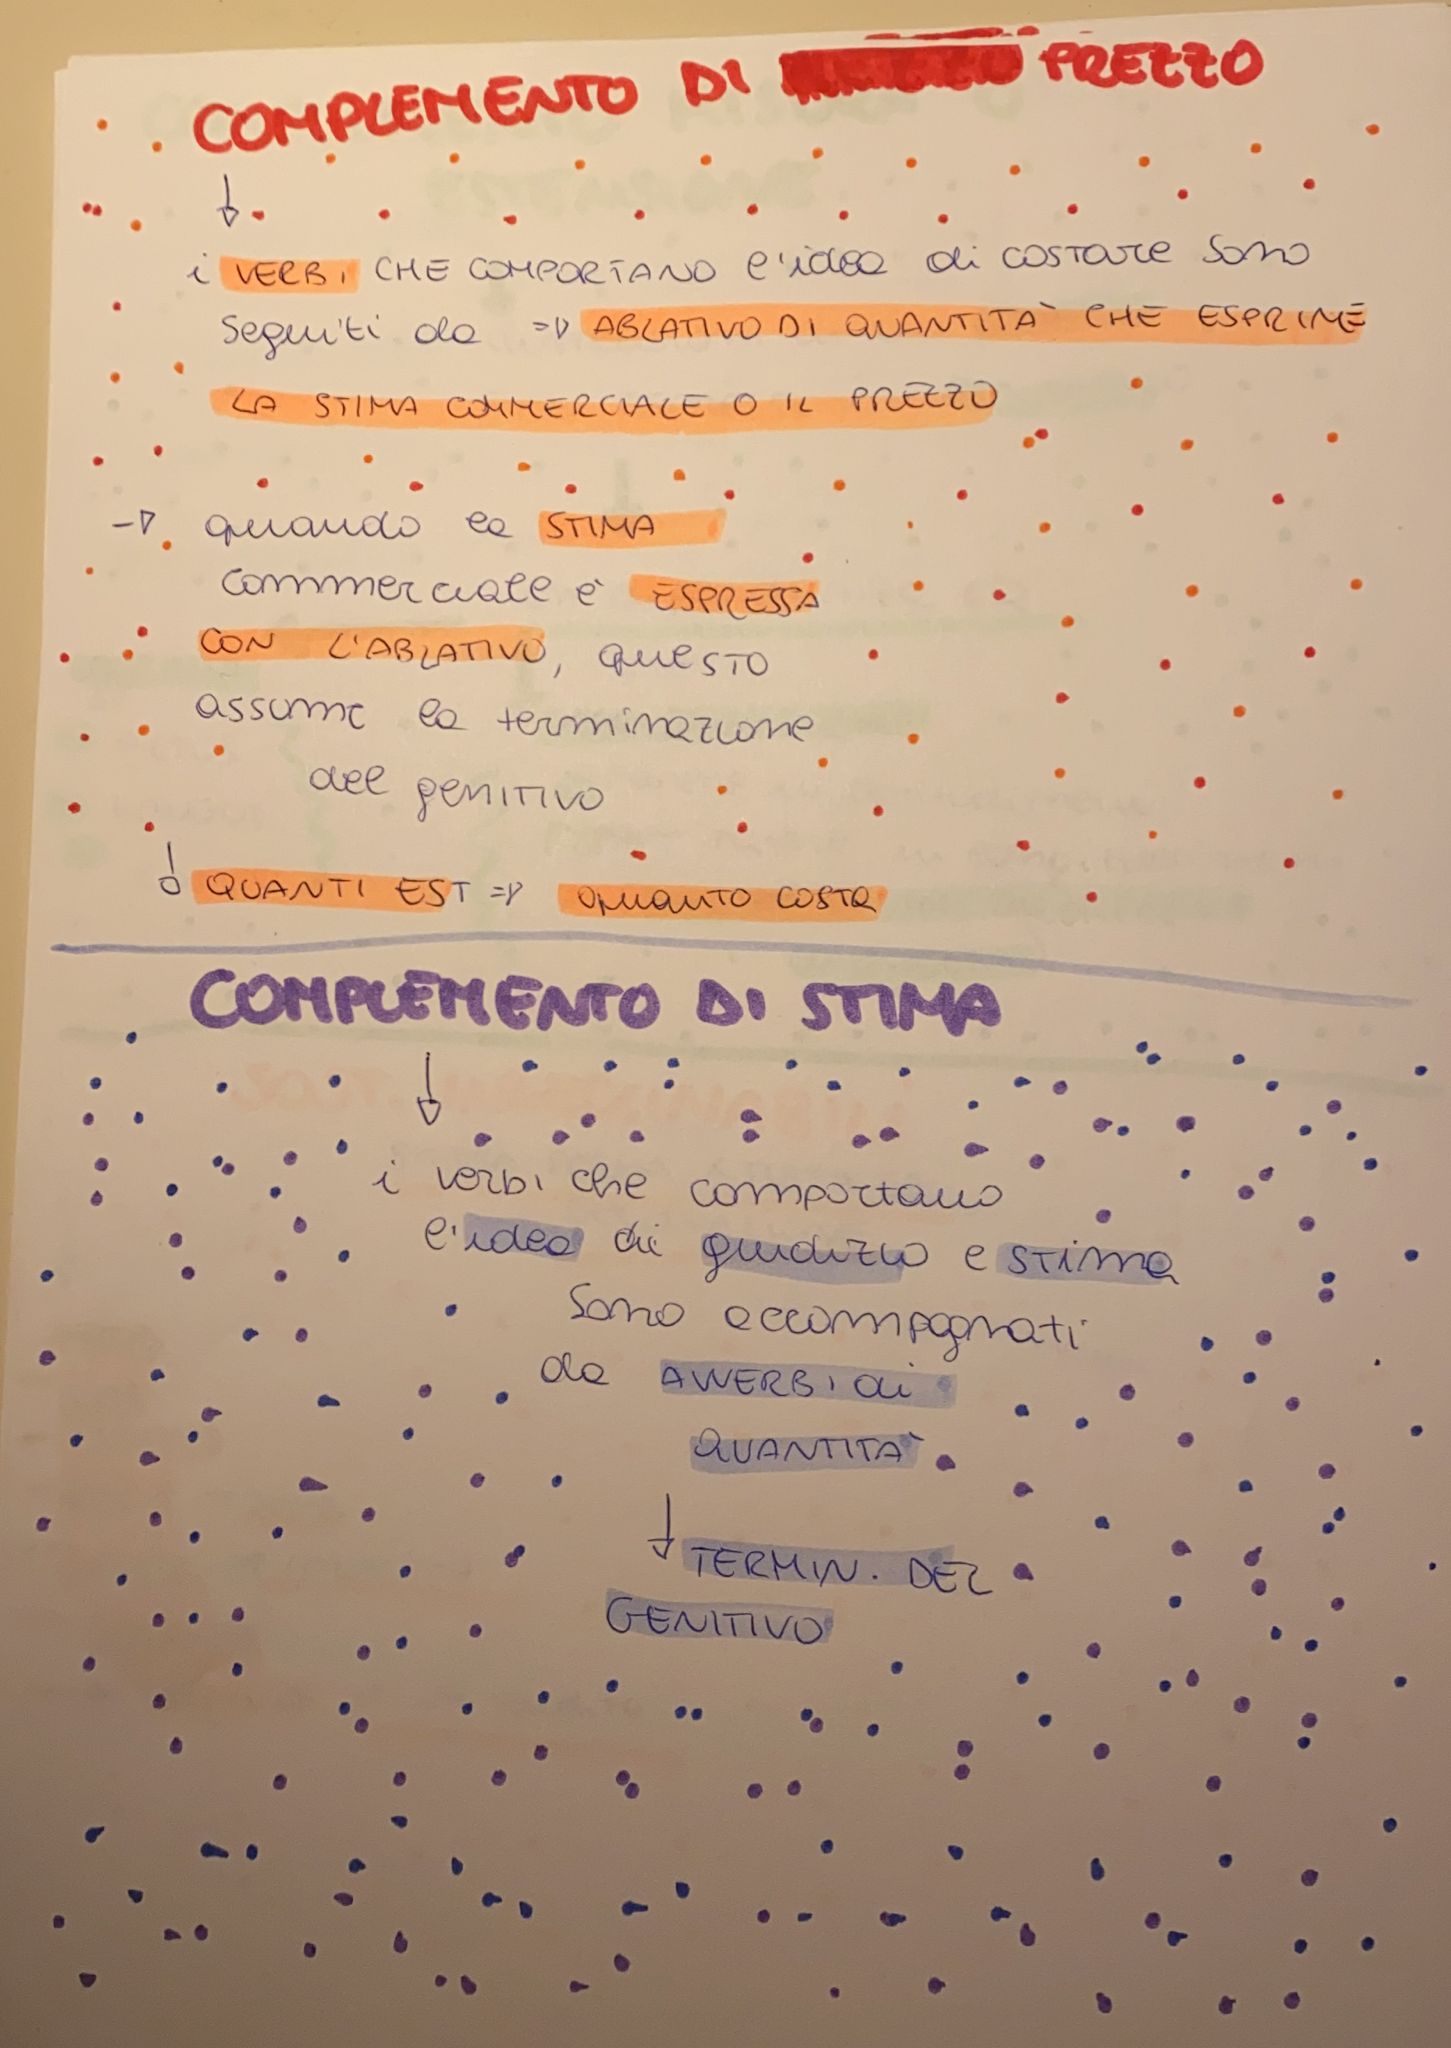 COMPLEMENTO DI PREZZO
i VERBI CHE COMPORTANO l'idea di costare sono
seguiti da => ABLATIVO DI QUANTITÀ CHE ESPRIME
LA STIMA COMMERCIALE O IL PREZZO
-> quando la STIMA
commerciale è ESPRESSA
CON L'ABLATIVO, questo
assume la terminazione
del genitivo
QUANTI EST => quanto costa
COMPLEMENTO DI STIMA
i verbi che comportano
l'idea di giudizio e stima
sono accompagnati
da AVVERBI di
QUANTITÀ
TERMIN. DEL
GENITIVO